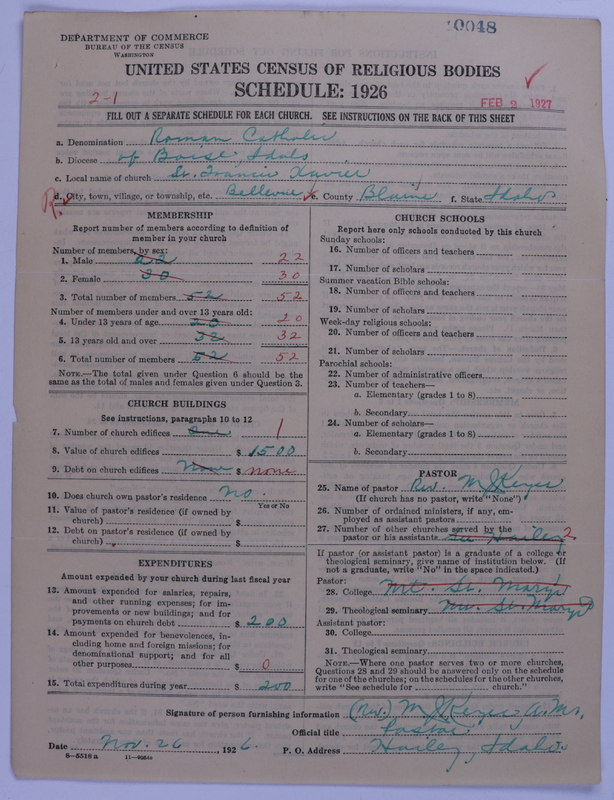 10048
DEPARTMENT OF COMMERCE
BUREAU OF THE CENSUS
WASHINGTON
UNITED STATES CENSUS OF RELIGIOUS BODIES
SCHEDULE: 1926
2-1
FEB 2 1927
FILL OUT A SEPARATE SCHEDULE FOR EACH CHURCH. SEE INSTRUCTIONS ON THE BACK OF THIS SHEET
a. Denomination Roman Catholic
b. Diocese of Boise, Idaho
c. Local name of church St. Francis Xavier
R. d. City, town, village, or township, etc. Bellevue e. County Blaine f. State Idaho
MEMBERSHIP
Report number of members according to definition of
member in your church
Number of members, by sex:
1. Male 22 22
2. Female 30 30
3. Total number of members 52 52
Number of members under and over 13 years old:
4. Under 13 years of age 20 20
5. 13 years old and over 32 32
6. Total number of members 52 52
NOTE.—The total given under Question 6 should be the
same as the total of males and females given under Question 3.
CHURCH BUILDINGS
See instructions, paragraphs 10 to 12
7. Number of church edifices One 1
8. Value of church edifices $ 1500
9. Debt on church edifices None $ none
10. Does church own pastor's residence No.
Yes or No
11. Value of pastor's residence (if owned by
church) $
12. Debt on pastor's residence (if owned by
church) $
EXPENDITURES
Amount expended by your church during last fiscal year
13. Amount expended for salaries, repairs,
and other running expenses; for im-
provements or new buildings; and for
payments on church debt $ 200
14. Amount expended for benevolences, in-
cluding home and foreign missions; for
denominational support; and for all
other purposes $ 0
15. Total expenditures during year $ 200
CHURCH SCHOOLS
Report here only schools conducted by this church
Sunday schools:
16. Number of officers and teachers
17. Number of scholars
Summer vacation Bible schools:
18. Number of officers and teachers
19. Number of scholars
Week-day religious schools:
20. Number of officers and teachers
21. Number of scholars
Parochial schools:
22. Number of administrative officers
23. Number of teachers—
a. Elementary (grades 1 to 8)
b. Secondary
24. Number of scholars—
a. Elementary (grades 1 to 8)
b. Secondary
PASTOR
25. Name of pastor Rev. M J Keyes
(If church has no pastor, write "None")
26. Number of ordained ministers, if any, em-
ployed as assistant pastors
27. Number of other churches served by the
pastor or his assistants Hailey 2
If pastor (or assistant pastor) is a graduate of a college or
theological seminary, give name of institution below. (If
not a graduate, write "No" in the space indicated.)
Pastor:
28. College Mt. St. Mary's
29. Theological seminary Mt. St. Mary's
Assistant pastor:
30. College
31. Theological seminary
NOTE.—Where one pastor serves two or more churches,
Questions 28 and 29 should be answered only on the schedule
for one of the churches; on the schedules for the other churches,
write "See schedule for church."
Signature of person furnishing information (Rev.) M J Keyes A.M.
Official title Pastor
Date Nov. 26, 1926. P. O. Address Hailey, Idaho
8—5518a